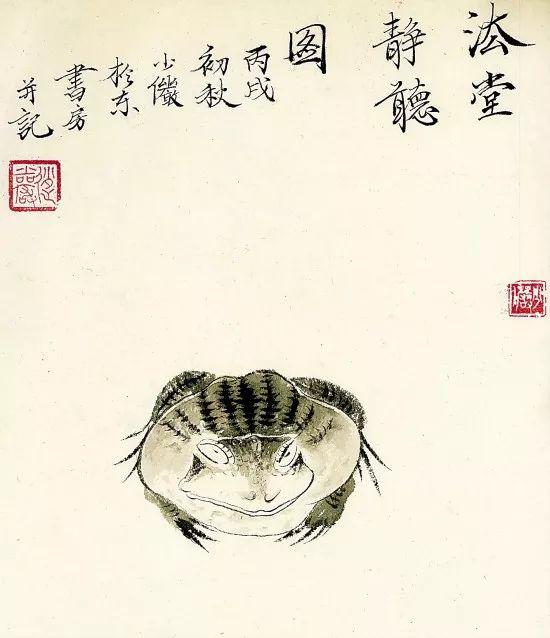 法堂
静聽
图
丙戌
初秋
小
於东
書房
并記